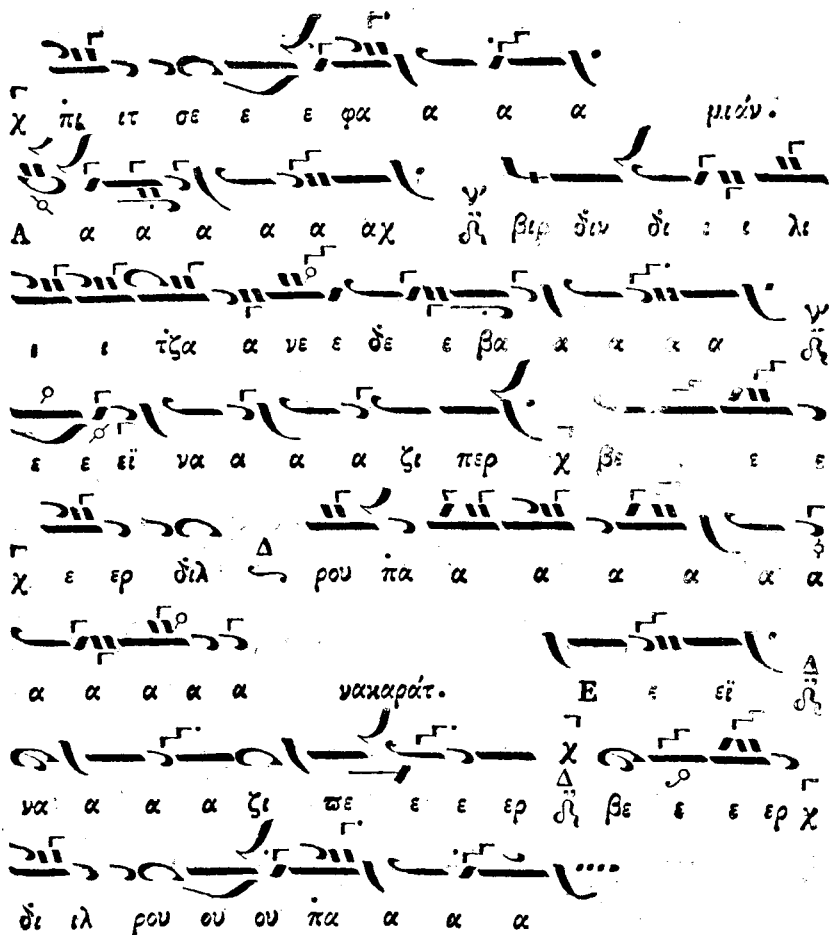 χ π̇ι ιτ σε ε ε φα α α α α μιάν.
Α α α α α α αχ βιρ δ̇ιν δ̇ι ι ι λι
ι ι τ̇ζα α νε ε δ̇ε ε β̇α α α α α
ε ε εϊ να α α α ζι περ χ βε ε ε
χ ε ερ δ̇ιλ Δ ρου π̇α α α α α α α
α α α α α νακαράτ. Ε ε εϊ Δ
να α α α ζι ϖε ε ε ερ χ Δ βε ε ε ερ χ
δ̇ι ιλ ρου ου ου π̇α α α α